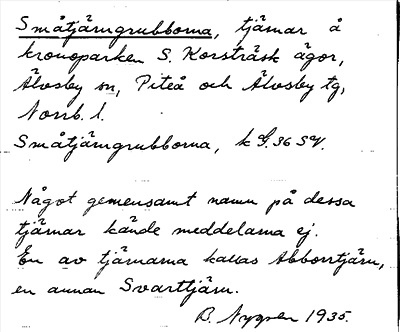 Småtjärngrubborna, tjärnar å
kronoparken S. Korsträsk ägor,
Älvsby sn, Piteå och Älvsby tg,
Norrb. l.
Småtjärngrubborna, k G. 36 SV.
Något gemensamt namn på dessa
tjärnar kände meddelarna ej.
En av tjärnarna kallas Abborrtjärn,
en annan Svarttjärn.
B. Nygren 1935.